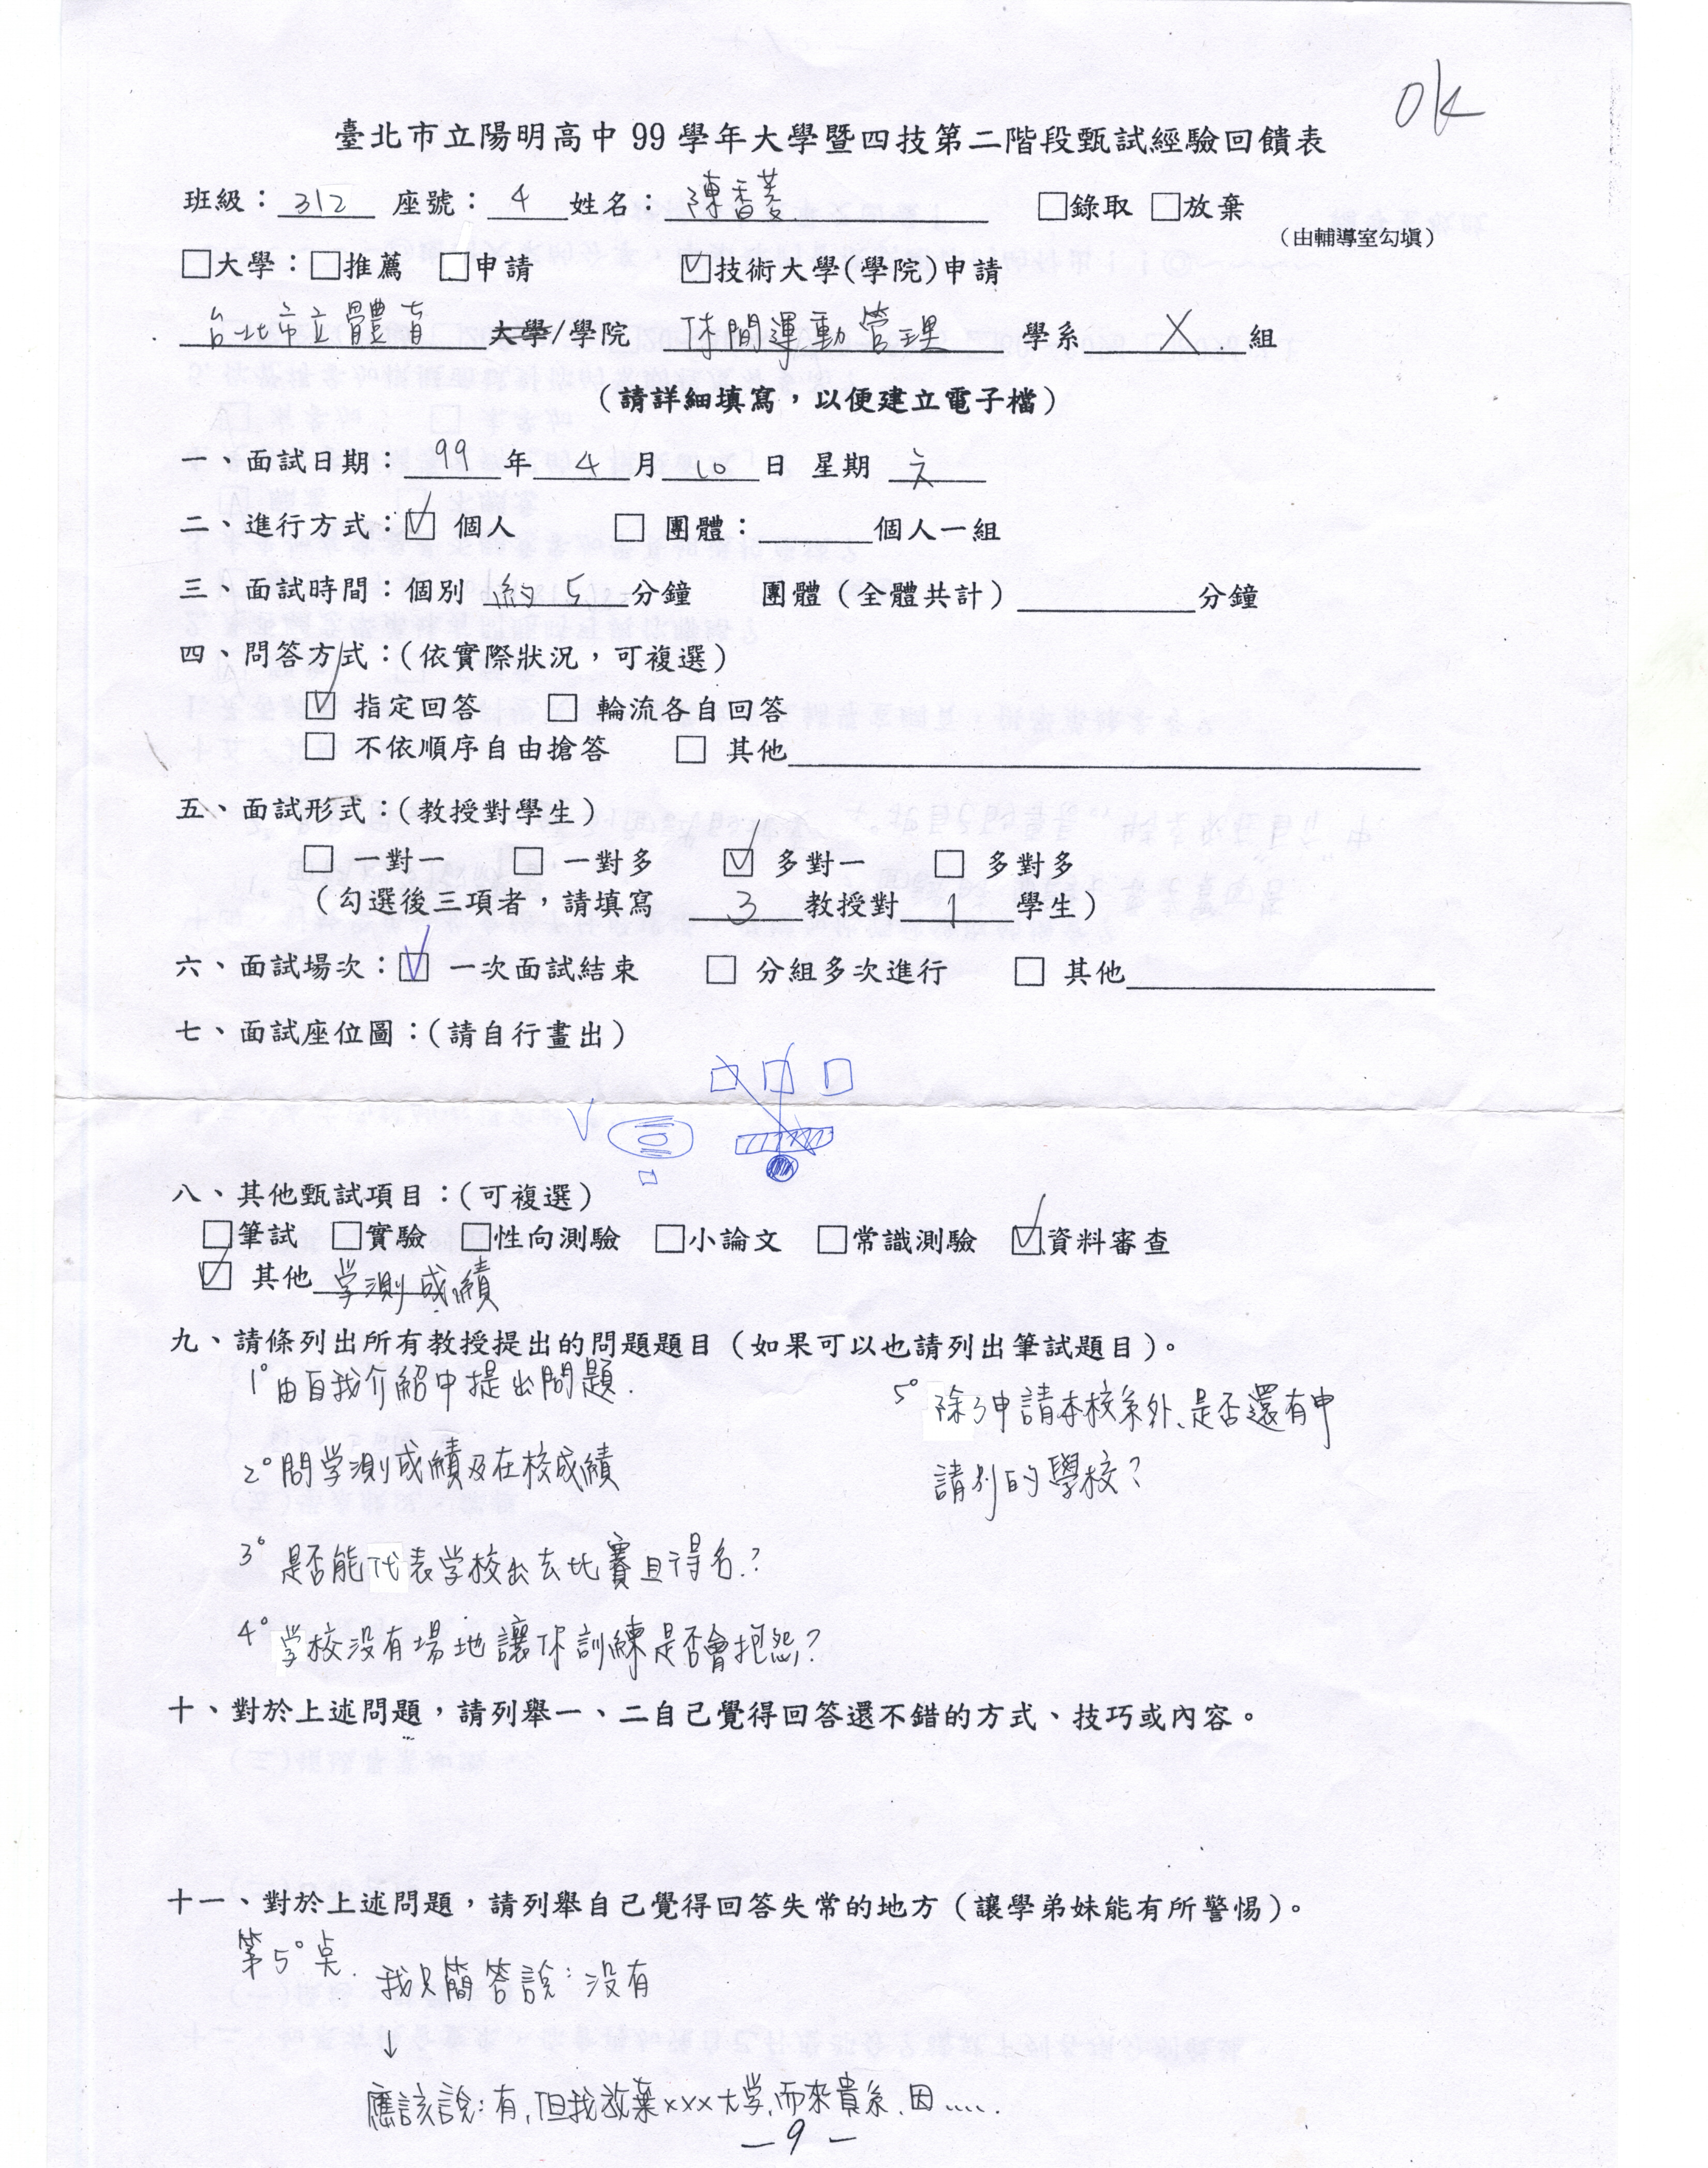 ok
臺北市立陽明高中 99 學年大學暨四技第二階段甄試經驗回饋表
班級：312 座號：4 姓名：陳香菱 □錄取 □放棄
（由輔導室勾填）
□大學：□推薦 □申請 ☑技術大學(學院)申請
台北市立體育大學/學院 休閒運動管理 學系 X 組
（請詳細填寫，以便建立電子檔）
一、面試日期：99年4月10日 星期六
二、進行方式：☑ 個人 □ 團體：______個人一組
三、面試時間：個別 約5 分鐘 團體（全體共計）______分鐘
四、問答方式：（依實際狀況，可複選）
☑ 指定回答 □ 輪流各自回答
□ 不依順序自由搶答 □ 其他______
五、面試形式：（教授對學生）
□ 一對一 □ 一對多 ☑ 多對一 □ 多對多
（勾選後三項者，請填寫 3 教授對 1 學生）
六、面試場次：☑ 一次面試結束 □ 分組多次進行 □ 其他______
七、面試座位圖：（請自行畫出）
八、其他甄試項目：（可複選）
□筆試 □實驗 □性向測驗 □小論文 □常識測驗 ☑資料審查
☑ 其他 学測成績
九、請條列出所有教授提出的問題題目（如果可以也請列出筆試題目）。
1° 由自我介紹中提出問題.
2° 問学測成績及在校成績
3° 是否能代表学校出去比賽且得名.?
4° 学校没有場地讓你訓練是否會抱怨?
5° 除了申請本校系外、是否還有申
請別的學校?
十、對於上述問題，請列舉一、二自己覺得回答還不錯的方式、技巧或內容。
十一、對於上述問題，請列舉自己覺得回答失常的地方（讓學弟妹能有所警惕）。
第5°点.
我只簡答說：没有
↓
應該說：有,但我放棄xxx大学,而來貴系、因.....
－9－